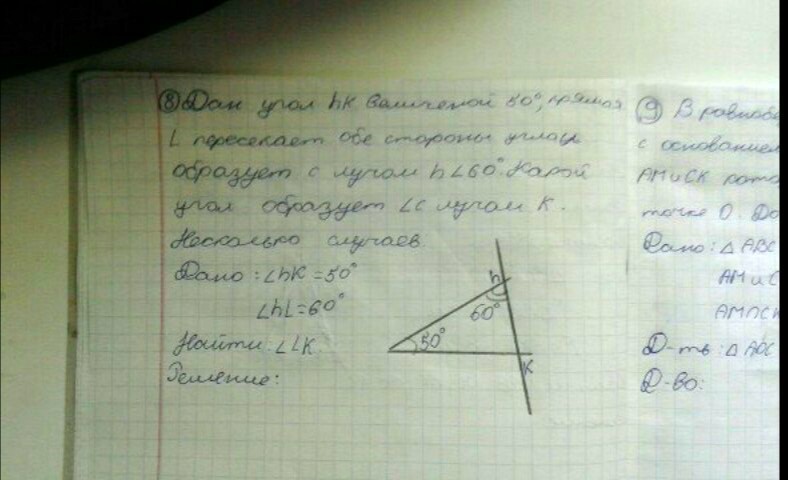 ⑧ Дан угол hK величеной 50°, прямая
L пересекает обе стороны угла и
образует с лучом h ∠60°. Какой
угол образует ∠ с лучом K.
Несколько случаев.
Дано: ∠hK = 50°
∠hL = 60°
Найти: ∠LK
Решение:
h
60°
50°
K
⑨ В равнобе
с основанием
AM и CK
точке O. До
Дано: △ABC
AM и C
AM∩CK
Д-ть: △AOC
Д-во: